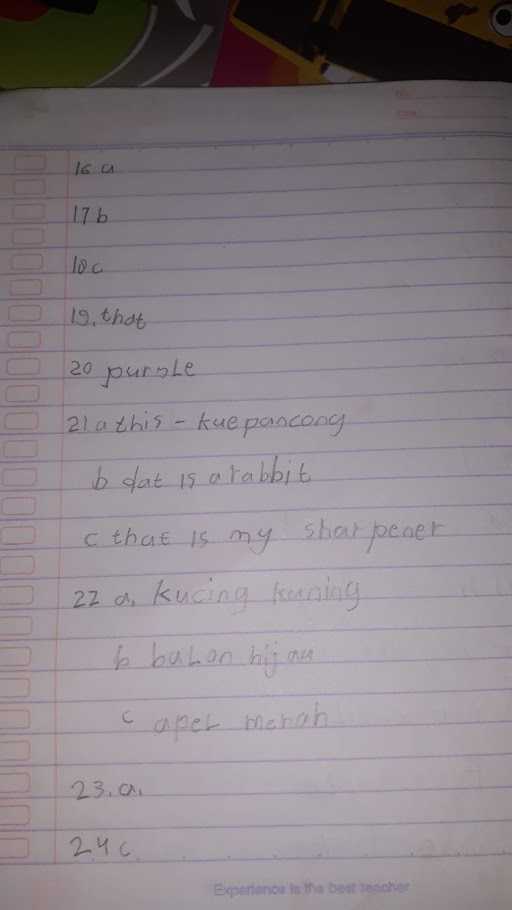 16 a
17 b
18 c
19. that
20 purple
21 a this - kue pancong
b dat is a rabbit
c that is my sharpener
22 a. kucing kuning
b balon hijau
c apel merah
23. a.
24 c.
Experience is the best teacher